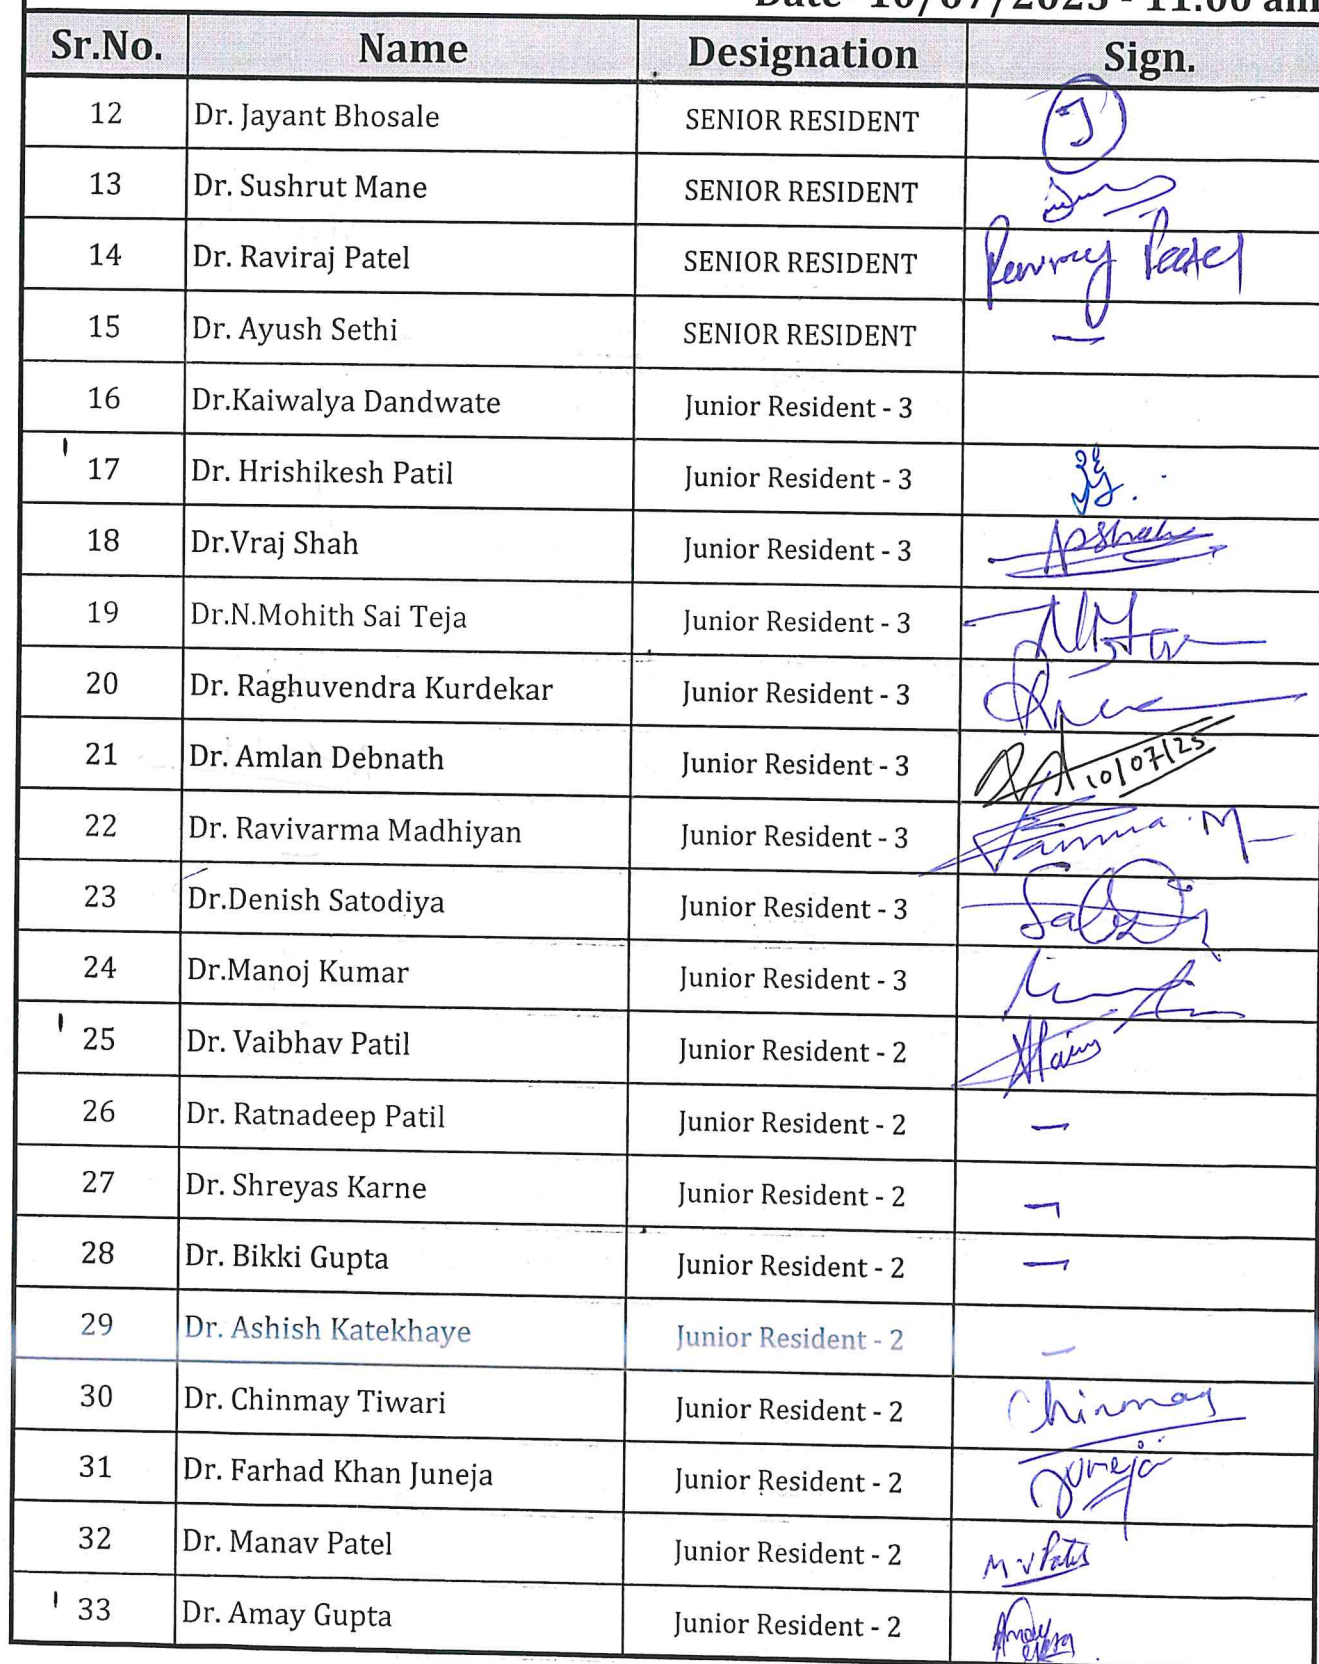 Date- 10/07/2025 - 11:00 am
Sr.No. Name Designation Sign.
12 Dr. Jayant Bhosale SENIOR RESIDENT J
13 Dr. Sushrut Mane SENIOR RESIDENT
14 Dr. Raviraj Patel SENIOR RESIDENT Raviraj Patel
15 Dr. Ayush Sethi SENIOR RESIDENT —
16 Dr.Kaiwalya Dandwate Junior Resident - 3
17 Dr. Hrishikesh Patil Junior Resident - 3
18 Dr.Vraj Shah Junior Resident - 3
19 Dr.N.Mohith Sai Teja Junior Resident - 3
20 Dr. Raghuvendra Kurdekar Junior Resident - 3
21 Dr. Amlan Debnath Junior Resident - 3 10/07/25
22 Dr. Ravivarma Madhiyan Junior Resident - 3
23 Dr.Denish Satodiya Junior Resident - 3
24 Dr.Manoj Kumar Junior Resident - 3
25 Dr. Vaibhav Patil Junior Resident - 2
26 Dr. Ratnadeep Patil Junior Resident - 2 —
27 Dr. Shreyas Karne Junior Resident - 2 —
28 Dr. Bikki Gupta Junior Resident - 2 —
29 Dr. Ashish Katekhaye Junior Resident - 2 —
30 Dr. Chinmay Tiwari Junior Resident - 2 Chinmay
31 Dr. Farhad Khan Juneja Junior Resident - 2 Juneja
32 Dr. Manav Patel Junior Resident - 2 M V Patel
33 Dr. Amay Gupta Junior Resident - 2 Amay Gupta